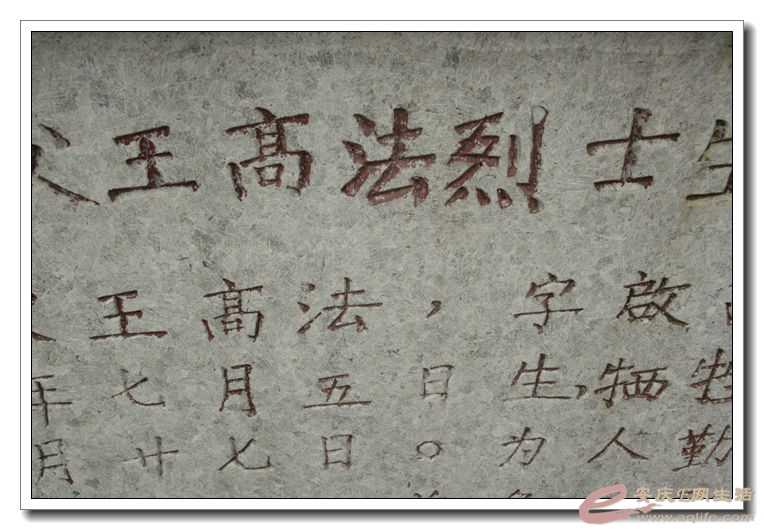 王髙法烈士生
王髙法，字啟
年七月五日生，牺
月廿七日。为人勤
安庆E网生活
www.aqlife.com